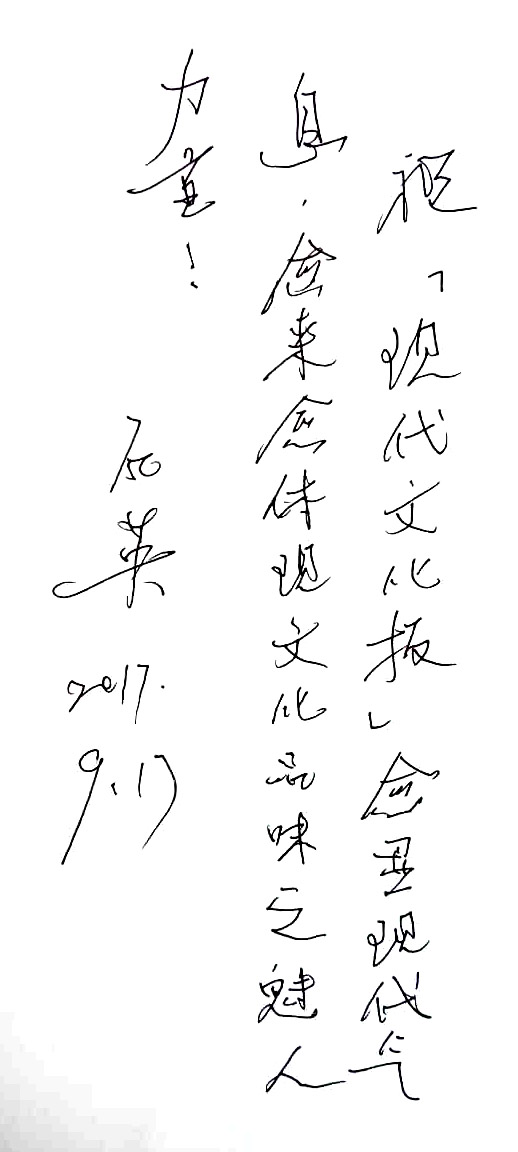 祝「现代文化报」愈显现代气
息，愈来愈体现文化品味之魅人
力量！
石英
2017.
9.17